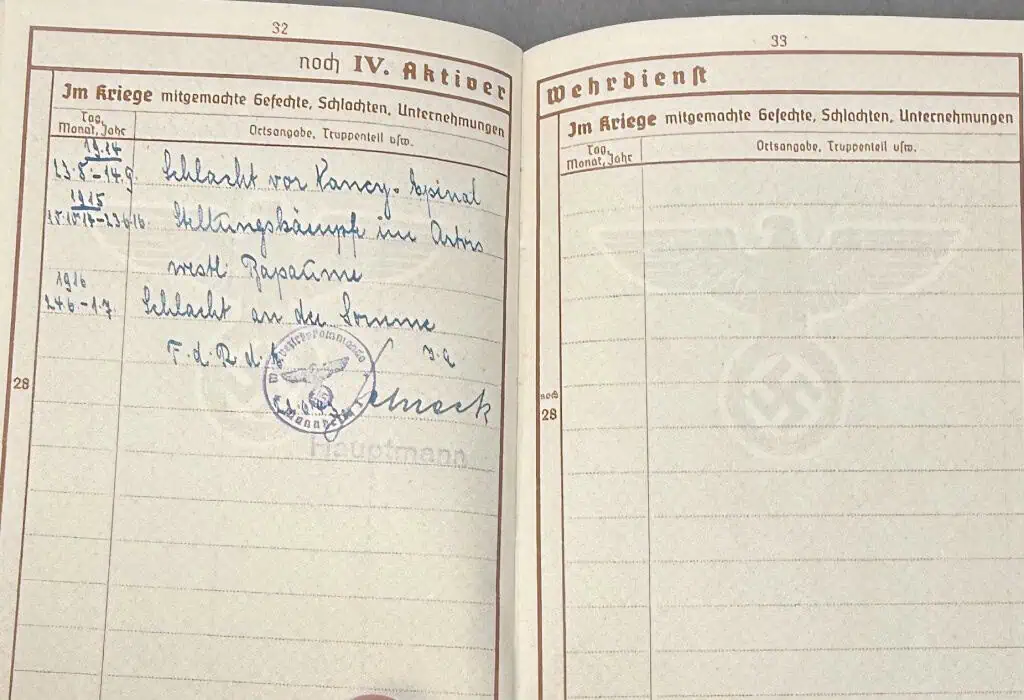 32
noch IV. Aktiver
Im Kriege mitgemachte Gefechte, Schlachten, Unternehmungen
Tag, Monat, Jahr
Ortsangabe, Truppenteil usw.
1914
23.8.-14.9. Schlacht vor Nancy-Epinal
1915
Stellungskämpfe im Artois
westl. Bapaume
1916
24.6.-1.7. Schlacht an der Somme
F.d.R.d.
I.A.
Hauptmann
28
33
Wehrdienst
Im Kriege mitgemachte Gefechte, Schlachten, Unternehmungen
Tag, Monat, Jahr
Ortsangabe, Truppenteil usw.
noch
28